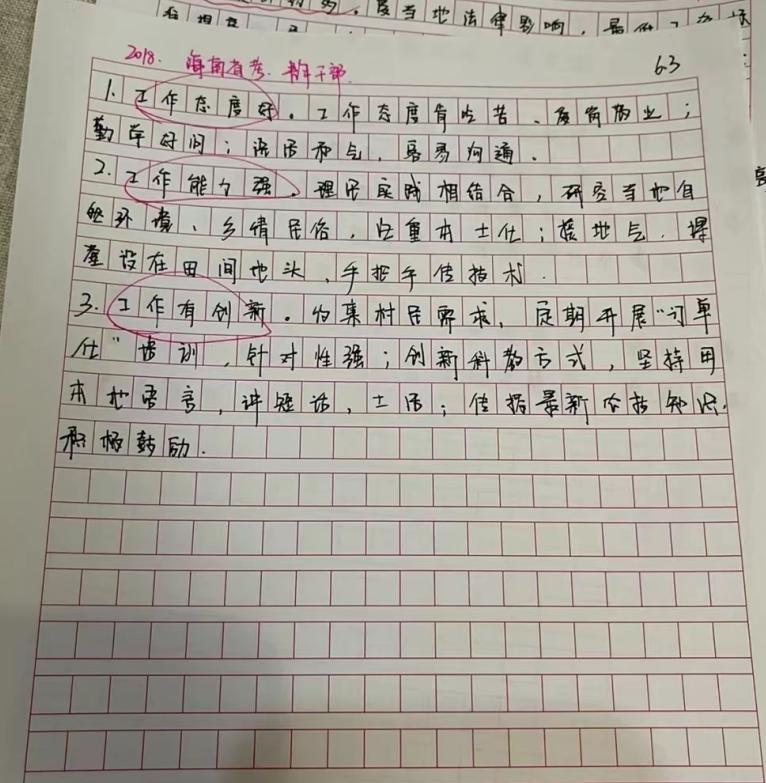 度当地法律影响，最
2018. 海南省考. 青年干部.
63
1. 工作态度好。工作态度肯吃苦、爱岗敬业；
勤学好问；语言和气，容易沟通.
2. 工作能力强。理论实践相结合，研究当地自
然环境、乡情民俗，注重本土化；接地气，课
堂设在田间地头，手把手传技术.
3. 工作有创新。收集村民需求，定期开展“订单
式”培训，针对性强；创新科教方式，坚持用
本地语言，讲短话，土话；传播最新农技知识.
积极鼓励.